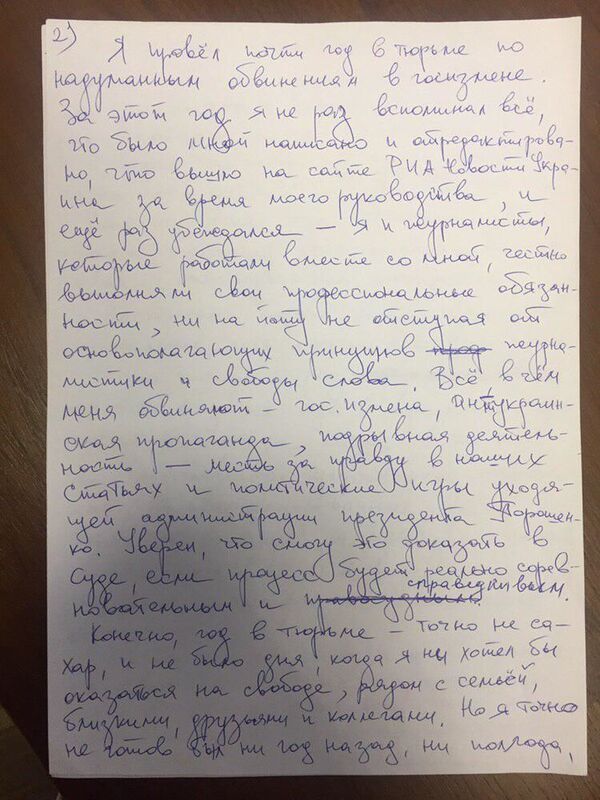 2)
Я провёл почти год в тюрьме по
надуманным обвинениям в госизмене.
За этот год я не раз вспоминал всё,
что было мной написано и отредактирова-
но, что вышло на сайте РИА Новости Укра-
ина за время моего руководства, и
ещё раз убеждался – я и журналисты,
которые работали вместе со мной, честно
выполняли свои профессиональные обязан-
ности, ни на йоту не отступая от
основополагающих принципов журна-
листики и свободы слова. Всё, в чём
меня обвиняют – гос.измена, антиукраин-
ская пропаганда, подрывная деятель-
ность – месть за правду в наших
статьях и политические игры уходя-
щей администрации президента Порошен-
ко. Уверен, что смогу это доказать в
суде, если процесс будет реально сорев-
новательным и справедливым.
Конечно, год в тюрьме – точно не са-
хар, и не было дня, когда я ни хотел бы
оказаться на свободе, рядом с семьёй,
близкими, друзьями и коллегами. Но я точно
не готов был ни год назад, ни полгода,